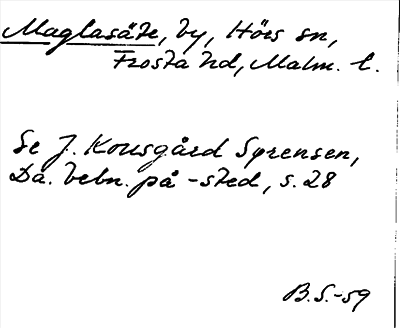 Maglasäte, by, Hörs sn,
Frosta hd, Malm. l.
Se J. Kousgård Sørensen,
Da. bebn. på -sted, s. 28
B.S.-59